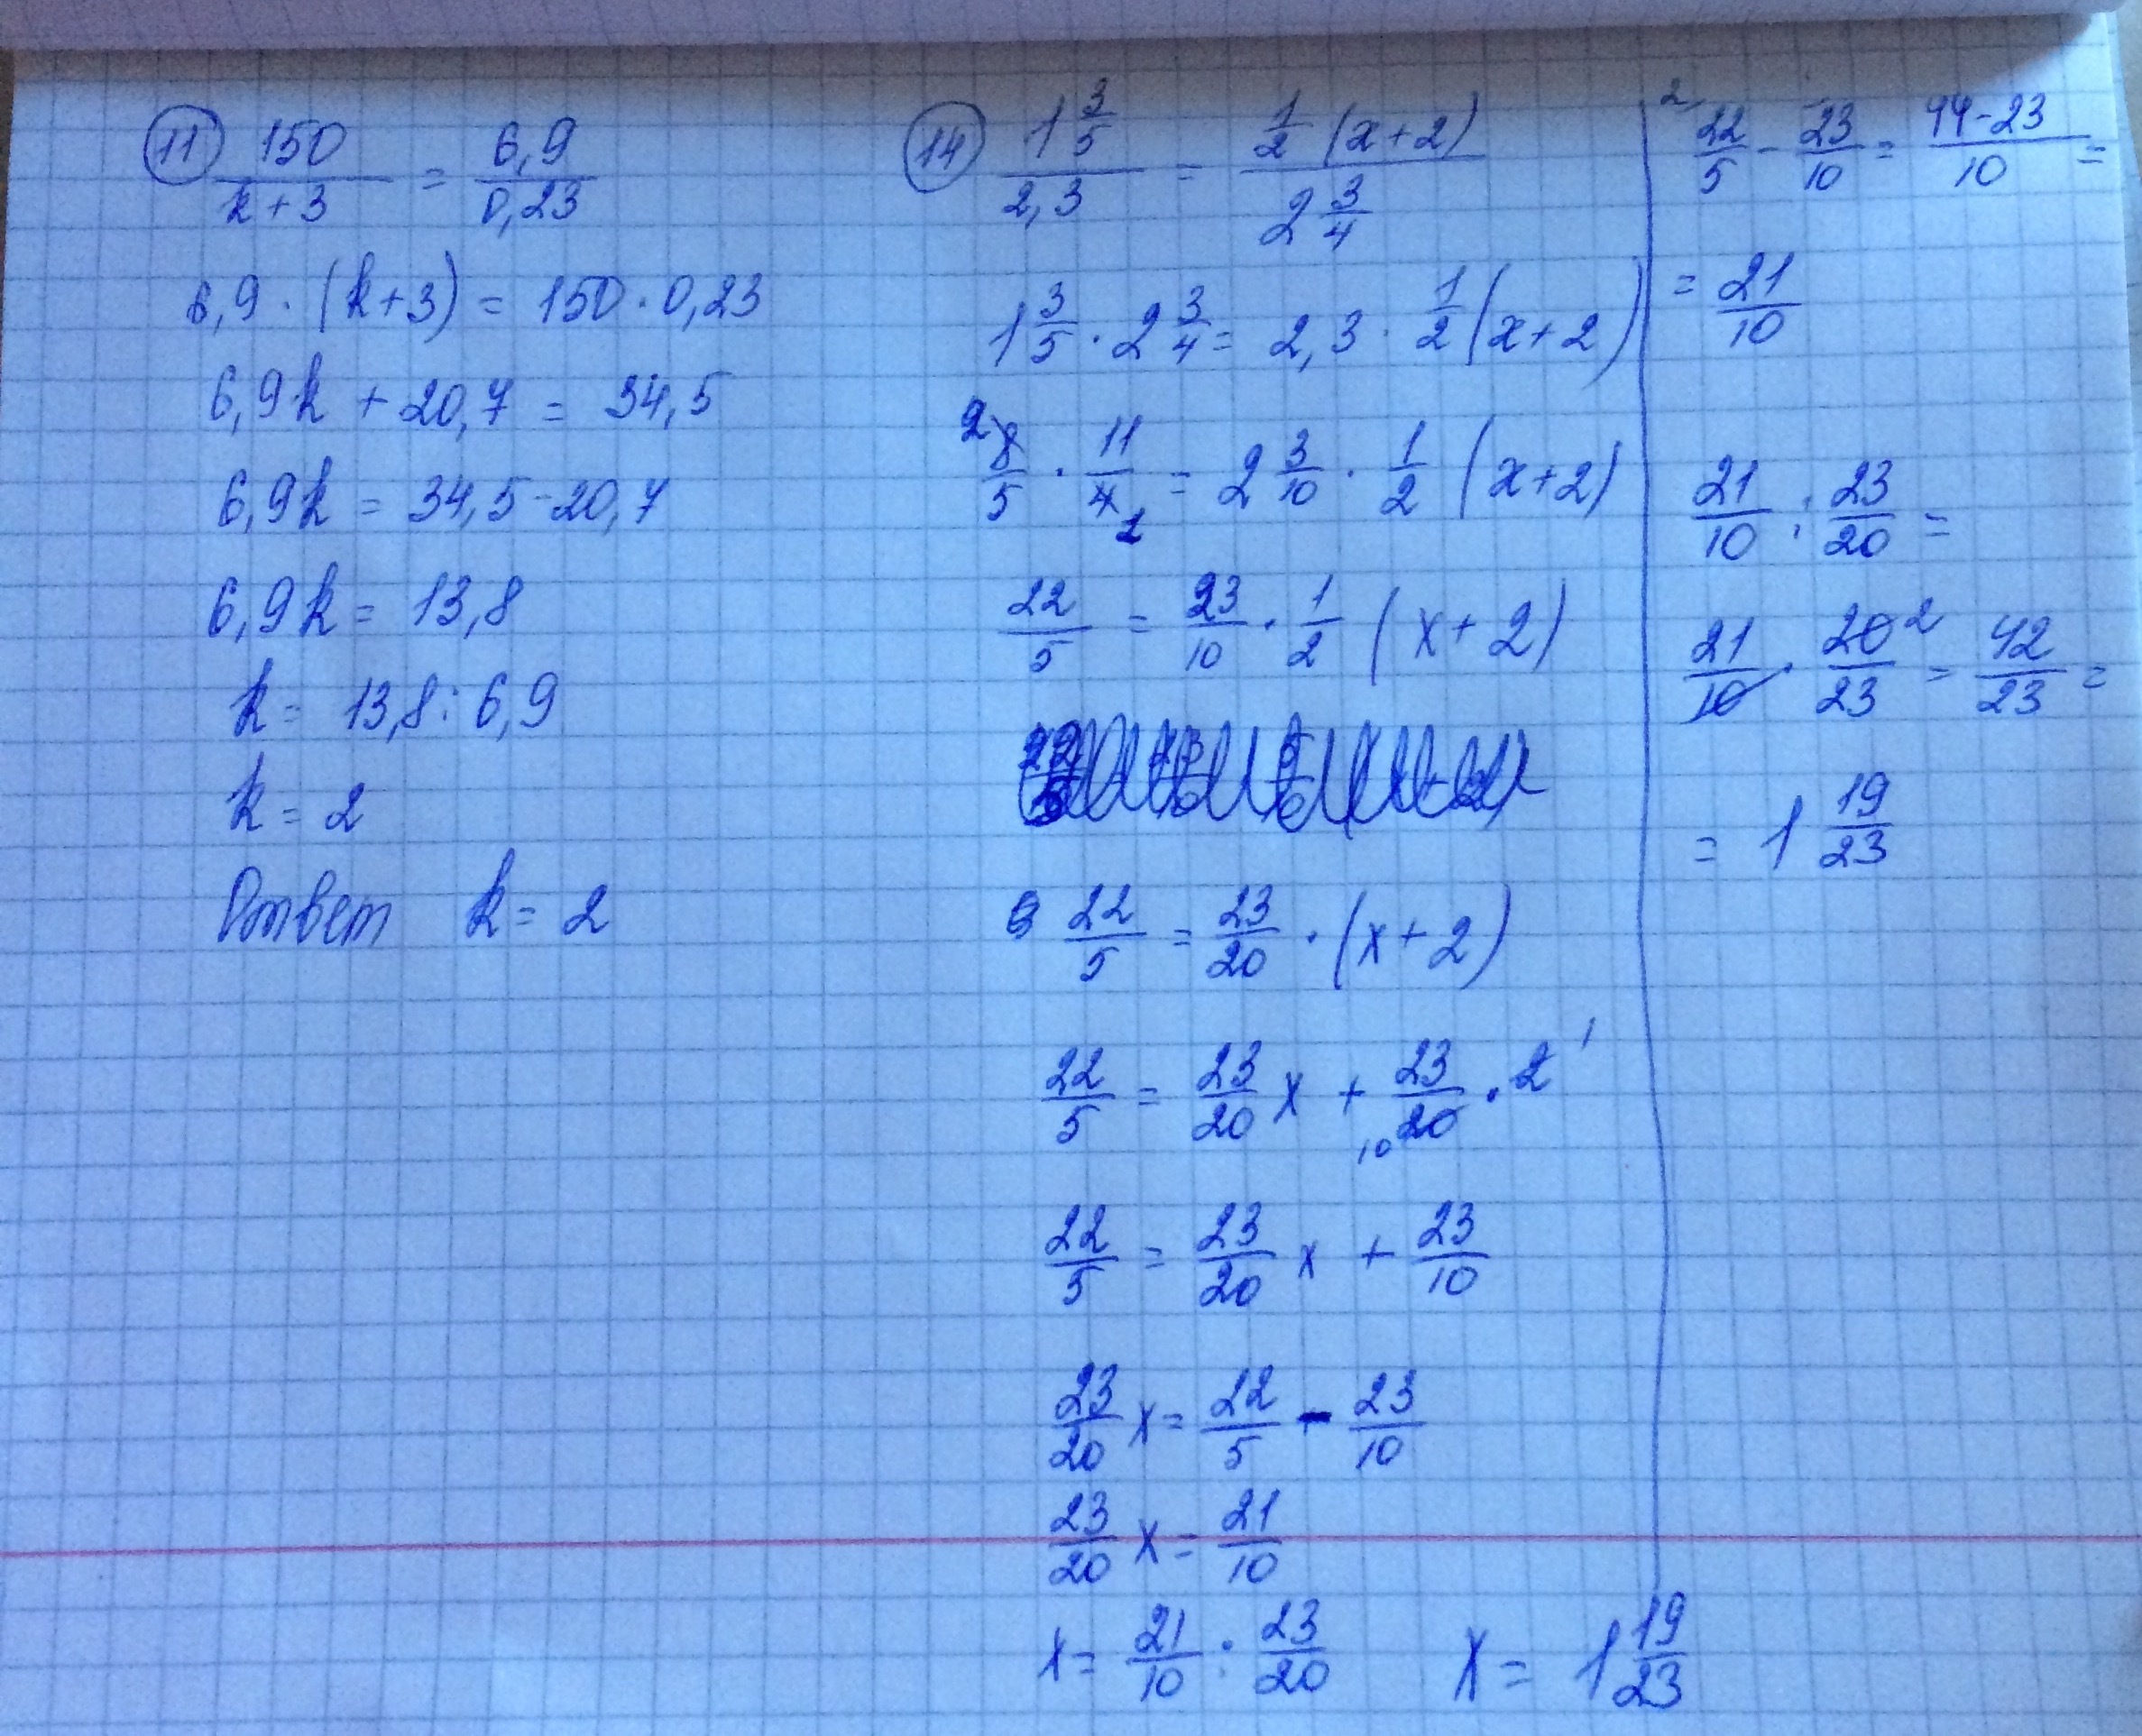 11) 150/(k+3) = 6,9/0,23
6,9 · (k+3) = 150 · 0,23
6,9k + 20,7 = 34,5
6,9k = 34,5 - 20,7
6,9k = 13,8
k = 13,8 : 6,9
k = 2
Ответ k = 2
14) 1 3/5 / 2,3 = 1/2 (x+2) / 2 3/4
1 3/5 · 2 3/4 = 2,3 · 1/2 (x+2)
2 8/5 · 11/4 1 = 2 3/10 · 1/2 (x+2)
22/5 = 23/10 · 1/2 (x+2)
22/5 = 23/20 · (x+2)
22/5 = 23/20 x + 23/20 10 · 2 1
22/5 = 23/20 x + 23/10
23/20 x = 22/5 - 23/10
23/20 x = 21/10
x = 21/10 : 23/20 x = 1 19/23
2 22/5 - 23/10 = (44-23)/10 =
= 21/10
21/10 : 23/20 =
21/10 · 20/23 2 = 42/23 =
= 1 19/23